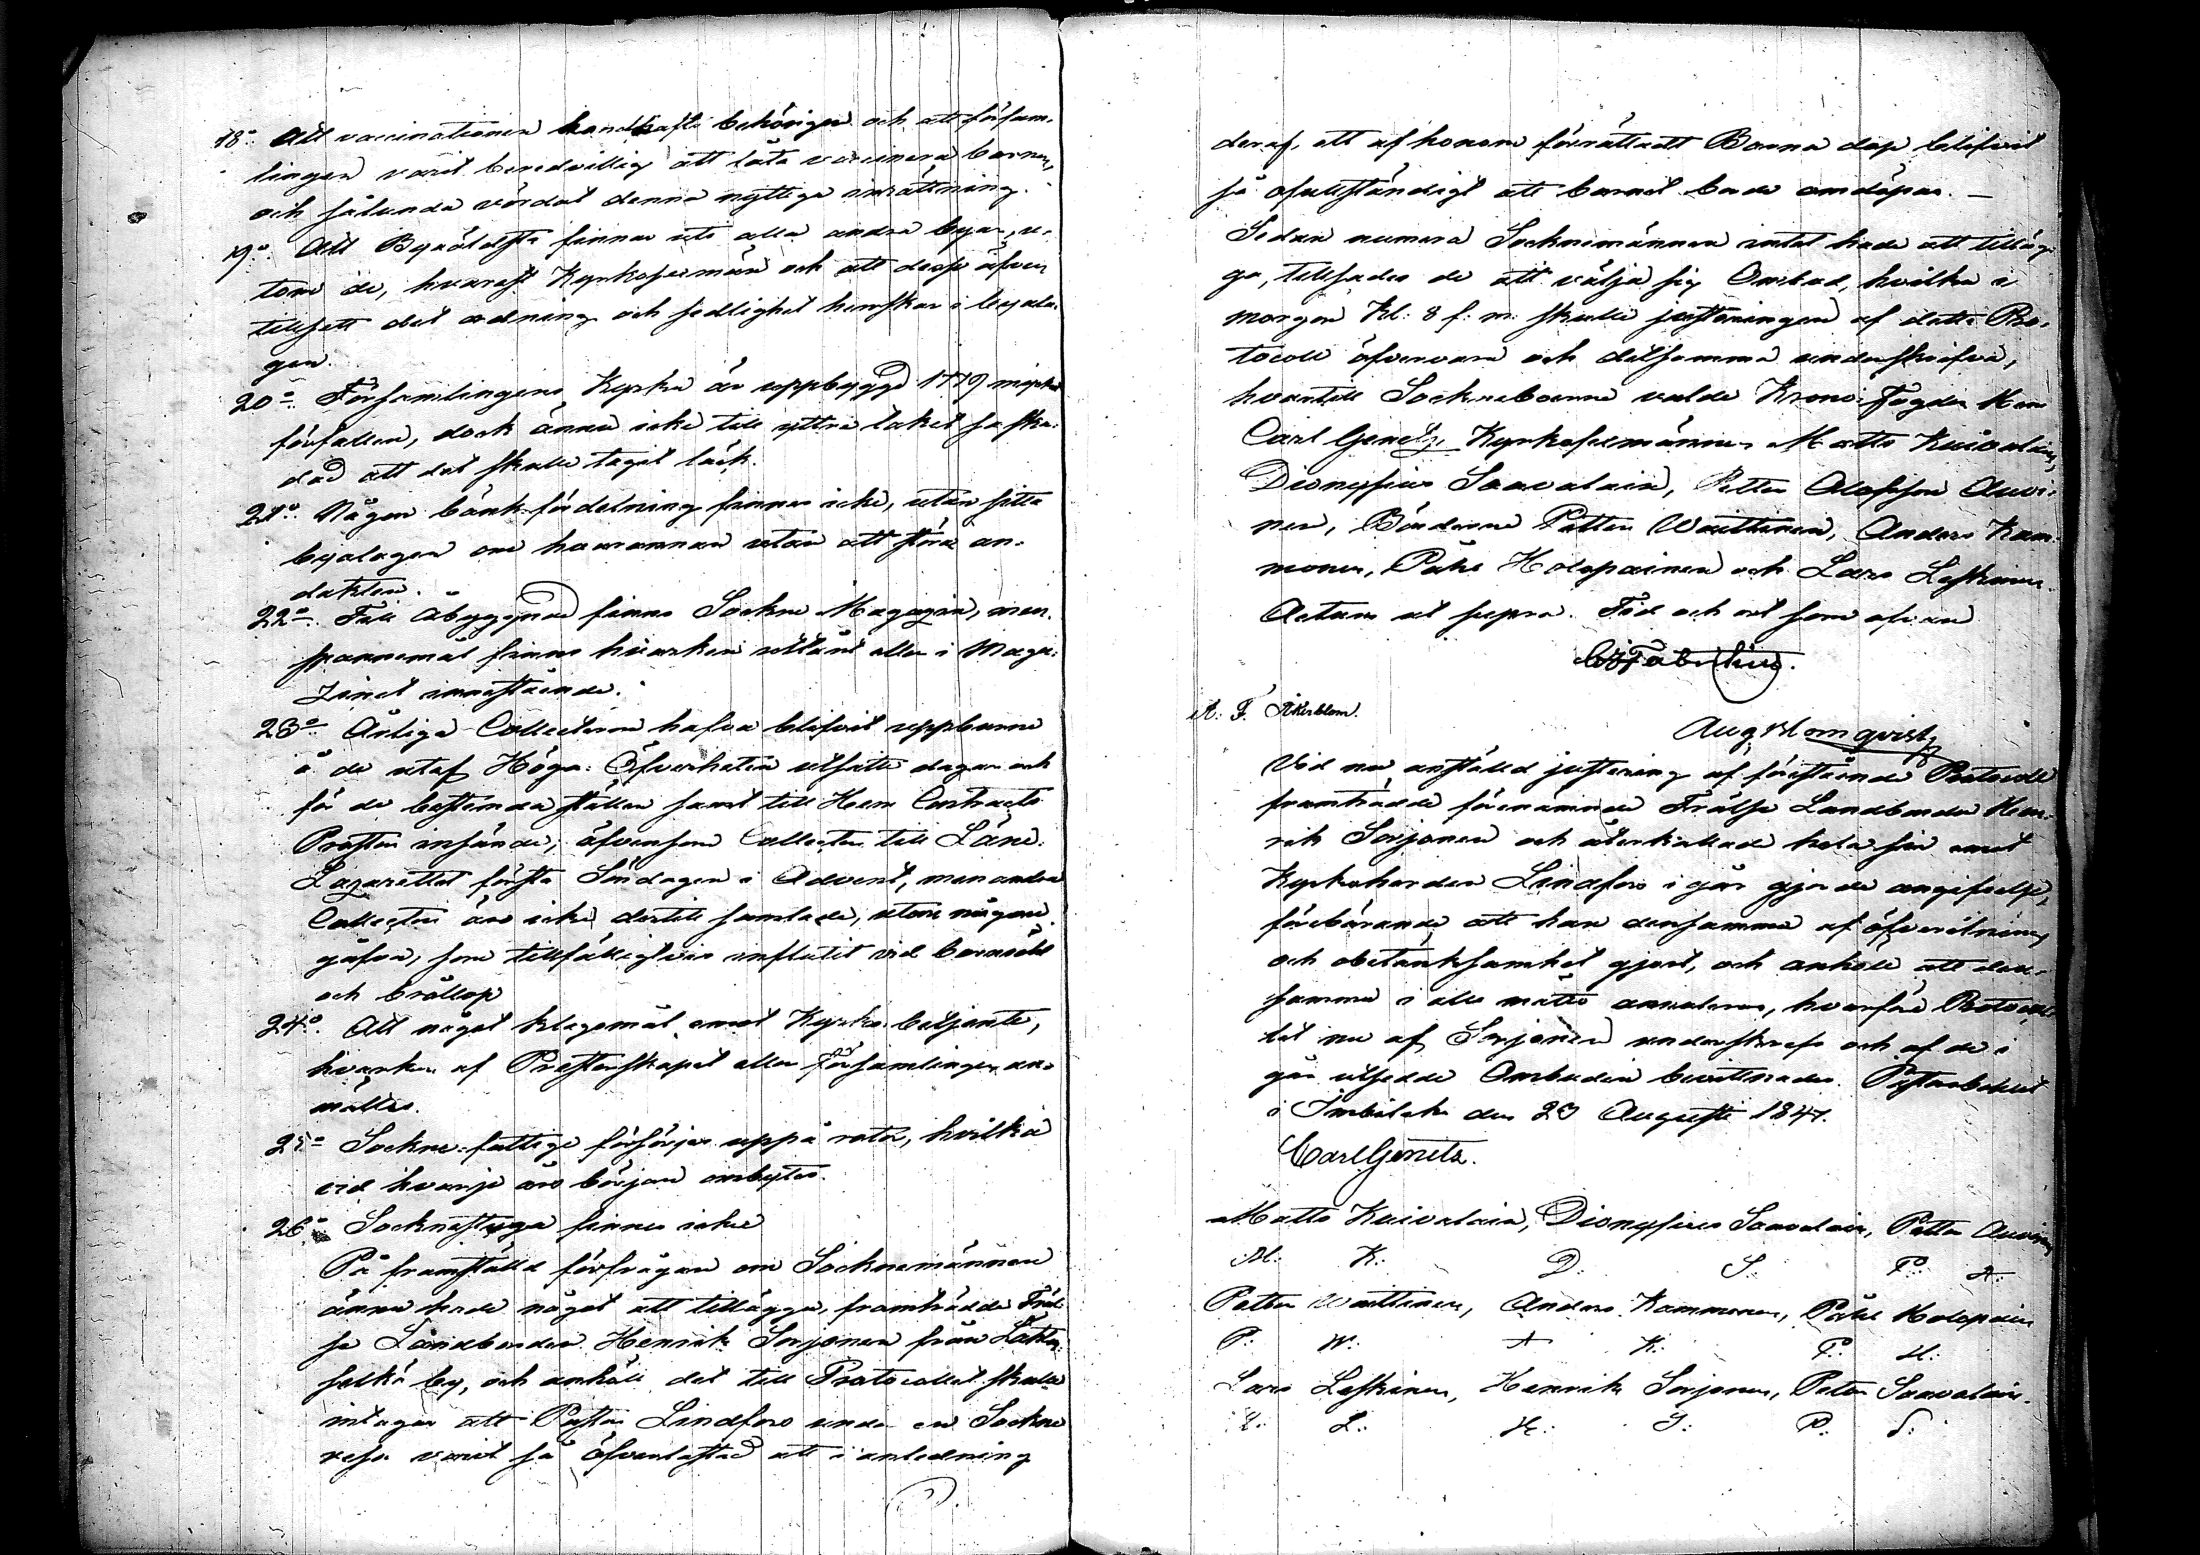 18:o Att vaccinationen handhafts behörigen och att försam-
lingen varit beredvillig att låta vaccinera barnen,
och sålunda vördat denna nyttiga inrättning.
19:o Att Byeäldste finnas uti alla andra byar, u-
tom de, hvarest Kyrkosexmän och att desse äfven
tillsett det ordning och sedlighet herrskar i byala-
gen.
20:o Församlingens Kyrka är uppbyggd 1779 mycket
förfallen, dock ännu icke till yttre taket så ska-
dad att det skulle taget läck.
21:o Någon bänk-fördelning finnes icke, utan sitta
byalagen om hvarannan utan att störa an-
dakten.
22:o Full åbyggnad finns Sockne Magazin, men
spannemål finns hvarken utlånt eller i Maga-
zinet innestående.
23:o Årliga Collecterna hafva blifvit uppburne
å de utaf Höga Öfverheten utsatte dagar och
för de bestemda ställen samt till Herr Contracts
Prosten insände, äfvensom Collecten till Läns
Lazarettet första Söndagen i Advent, men andra
Collecter äro icke dertill samlade, utom någon
gåfva, som tillfälligtvis influtit vid barnsöhl
och bröllop
24:o Att något klagomål emot Kyrko betjente,
hvarken af Presterskapet eller Församlingen an-
mältes.
25:o Sockne fattige försörjes uppå rotar, hvilka
vid hvarje års början ombytes.
26:o Socknestuga finnes icke
På framställd förfrågan om Socknemännen
ännu hade något att tillägga, framträdde Fräl-
se Landbonden Henrik Sorjonen från
by, och anhöll det till Protocollet skulle
intagas att Pastor Lindfors under en Sockne
resa varit så öfverlastad att i anledning
deraf, ett af honom förrättadt Barna dop blifvit
så ofullständigt att barnet bade omdöpas. —
Sedan numera Socknemännen intet hade att tilläg-
ga, tillsades de att välja sig Ombud, hvilka i
morgon Kl: 8 f: m: skulle justeringen af detta Pro-
tocoll öfvervara och detsamma underskrifva,
hvartill Sockneboerne valde Krono Fogden Herr
Carl Genetz, Kyrkosexmännen Matts Kuivalain,
Dionysius Saavalain, Petter Olofsson Auvi-
nen, Bönderne Petter Waittinen, Anders Kam-
monen, Påhl Holopainen och Lars Leskinen.
Actum ut supra. Tid och ort som ofvan
Fabritius.
A: F. Åkerblom.
Aug Blomqvist
Vid nu anställd justering af förestående Protocoll
framträdde förenämnde Frälse Landbonden Hen-
rik Sorjonen och återkallade hela sin emot
Kyrkoherden Lindfors i går gjorde angifvelse,
förebärande att han densamma af öfverilning
och obetänksamhet gjort, och anhöll att den-
samma i alla måtto annuleras, hvarföre Protocol-
let nu af Sorjonen underskrefs och af de i
går utsedde Ombuden bevittnades. Pastorsbohlet
i Imbilaks den 23 Augusti 1847.
Carl Genetz.
Matts Kuivalain, Dionysius Saavalain, Petter Auvinen
M: K: D: S: P: A:
Petter Waittinen, Anders Kammonen, Påhl Holopain
P: W: A K: P: H:
Lars Leskinen, Henrik Sorjonen, Peter Saavalain.
L: L: H: S: P: S: